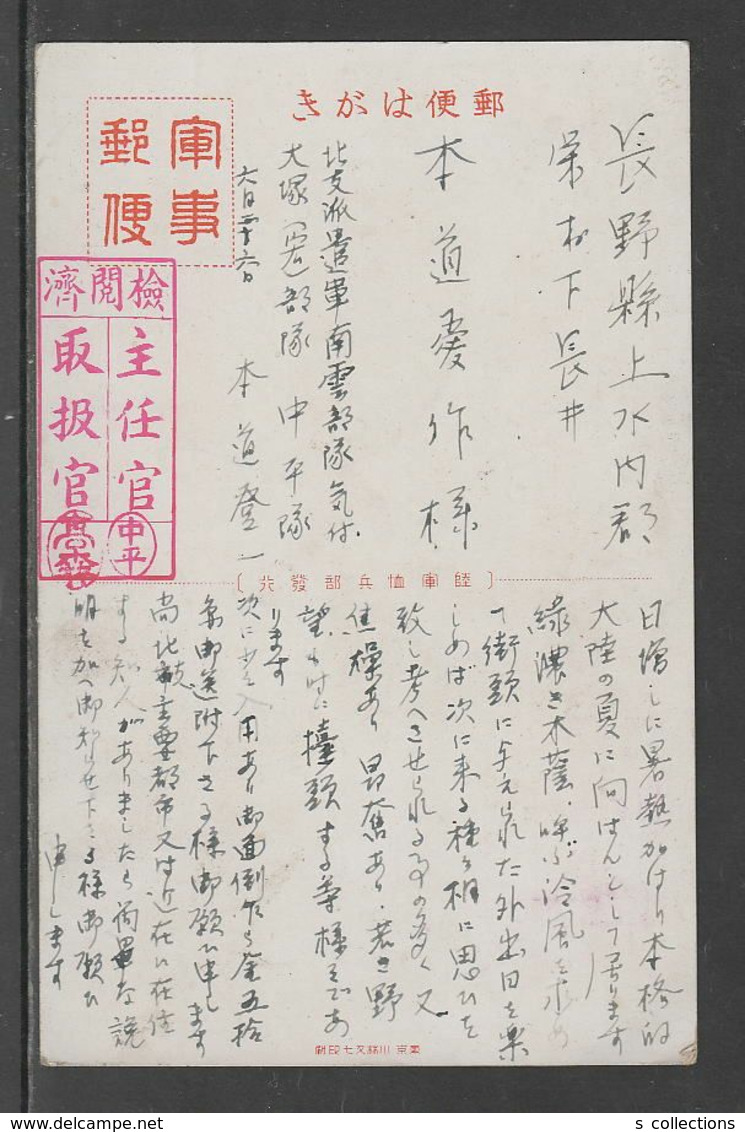 郵便はがき
軍事
郵便
檢閲濟
主任官
取扱官
中平
長野縣上水内郡
栄村下長井
本道愛作様
北支派遣軍南雲部隊気付
大塚(寛)部隊 中平隊
六月二十六日
本道登一
(陸軍恤兵部發行)
日増しに暑熱加はり本格的
大陸の夏に向はんとして居ります
緑濃き木蔭、呼ぶ冷風を求め
て街頭に与えられた外出日を楽
しめば次に来る種々相に思ひを
致し考へさせられる事の多く又
焦燥あり昂奮あり、若き野
望も時に擡頭する等様々であ
ります
次に少々入用あり御面倒乍ら金五拾
御送附下さる様御願ひ申します
尚北支主要都市又は近在に在住
する知人がありましたら簡単な説
明を加へ御知らせ下さる様御願ひ
申します
東京 川瀬又七印刷
s collections